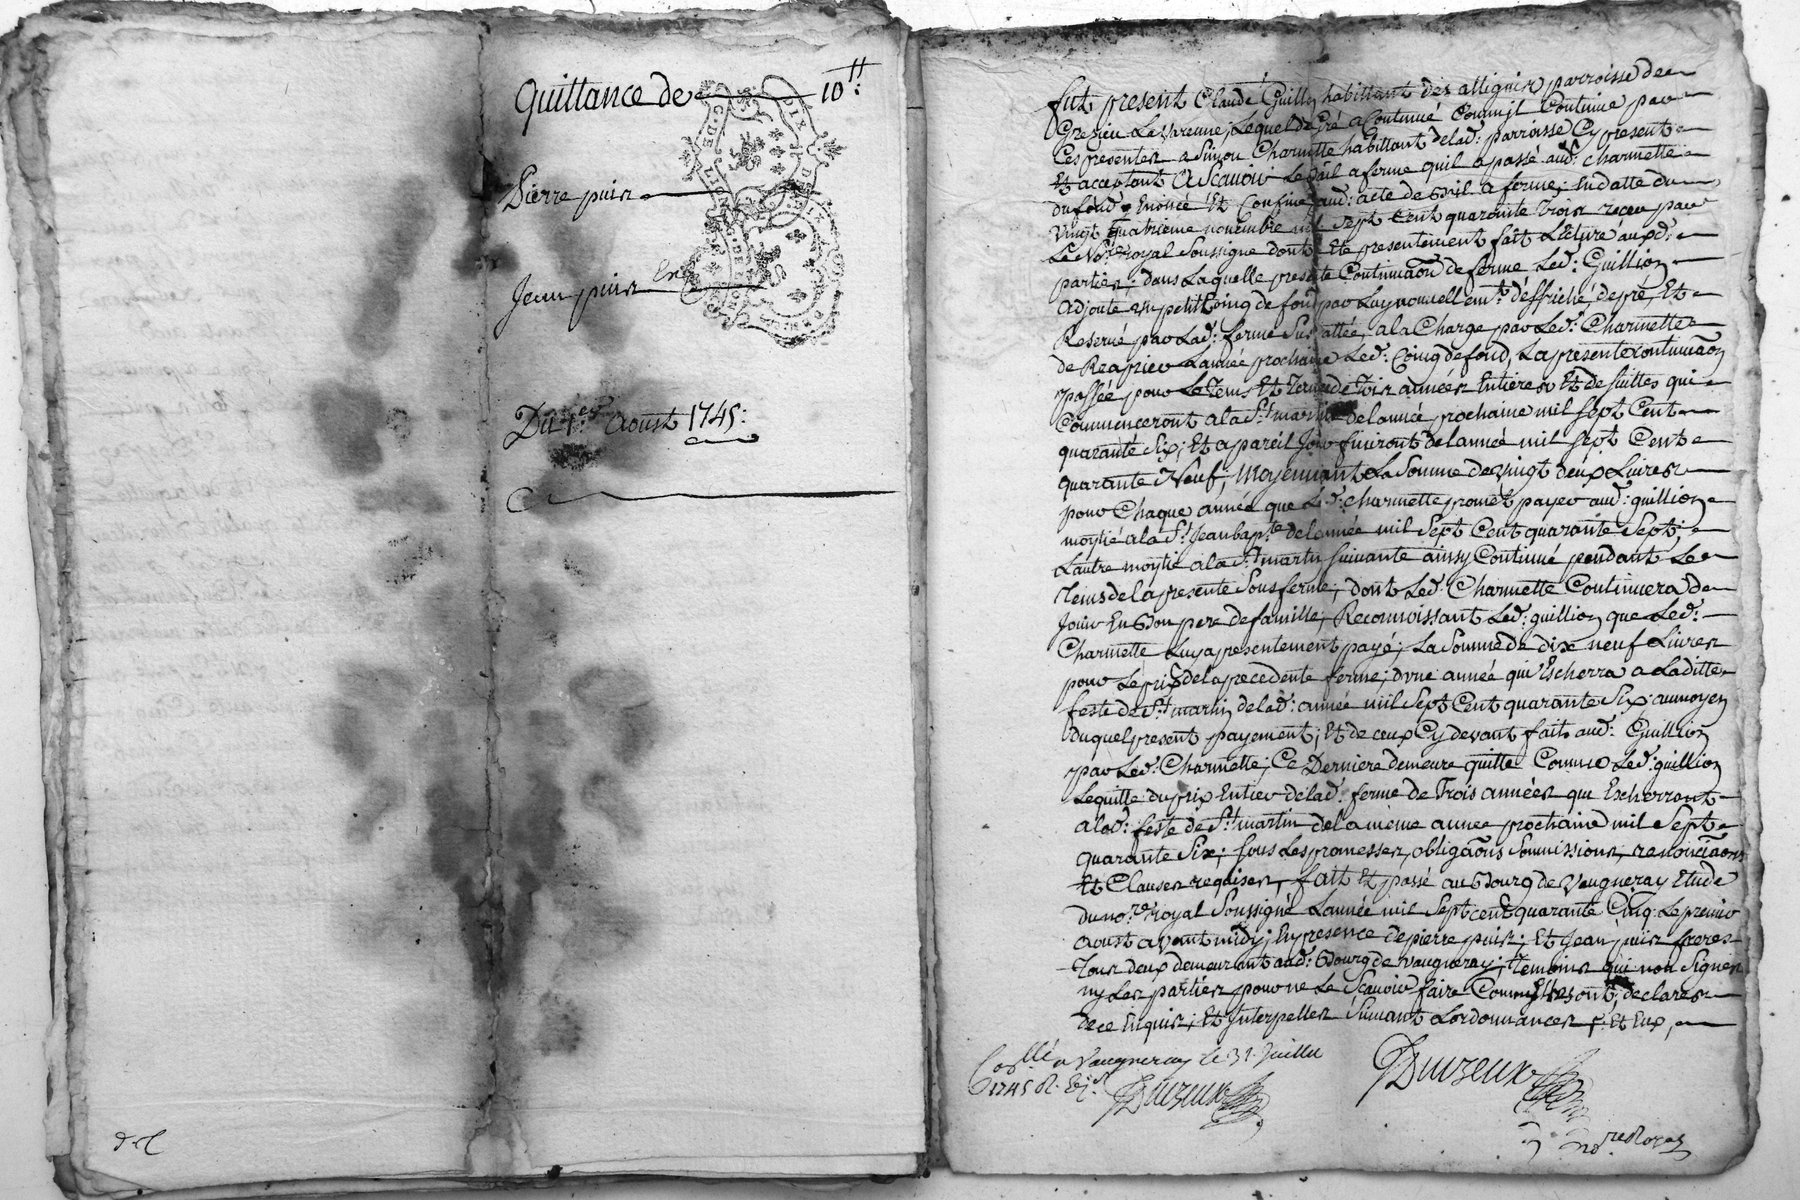 Quittance de 10tt:
Pierre puis
Jean puis Et
Du 1er Aoust 1745:
fut present Claude Guillon habittant des allignis parroisse de
Grezieu Lavarenne; Lequel de gré a continué comm'il continue par
Ces presentes a Simon Charmette habittant de lad: parroisse Cy present
Et acceptant a Scavoir Le bail a ferme quil a passé aud: charmette
du fond enoncé Et confiné aud: acte de bail a ferme; En datte du
vingt quatrieme novembre mil sept cent quarante trois receu par
Le Nore royal soussigné dont a été presentement fait Lecture auxd:
parties; dans Laquelle presente Continuaõn de ferme Led: Guillion
adjoute un petit Coing de fond par Luy nouvellemt. deffriché de pré, Et
Reservé par Lad: ferme sus dattée, a la Charge par Led: Charmette
de Reaprier Lannée prochaine Led: Coing de fond, La presente continuaõn
passée pour Le tems Et terme de trois années Entieres Et de suittes qui
Commenceront a la St. martin de lannée prochaine mil sept Cent
quarante Six; Et a pareil Jour finiront de lannée mil sept Cent
quarante Neuf; Moyennant La Somme de vingt deux Livres
pour Chaque année que Led: Charmette promet payer aud: guillion
moytié a la St. Jean bapte. de lannée mil Sept Cent quarante Sept;
Lautre moytié a la St. martin suivante ainsy continué pendant Le
tems de la presente Sous ferme; dont Led: Charmette Continuera de
Jouir En bon pere de famille; Reconnoissant Led: guillion que Led:
Charmette Luy a presentement payé; La Somme de dix neuf Livres
pour Le prix de la precedente ferme; d'une année qui Escherra a Laditte
feste de St. martin de lad: année mil Sept Cent quarante Six; au moyen
duquel present payement; Et de ceux Cy devant faits aud: Guillion
par Led: Charmette; Ce Derniere demeure quitte Comme Led: guillion
Le quitte du prix Entier de lad: ferme de Trois années qui Escherront
a lad: feste de St. martin de la meme année prochaine mil Sept
quarante Six; sous Les promesses, obligaõns Soumissions, renonciaõns
Et Clauses requises, fait Et passé au bourg de Vaugneray Etude
du nore. royal soussigné Lannée mil Sept cent quarante Cinq Le premier
aoust avant midy; En presence de pierre puis; Et Jean puis freres
Tous deux demeurant aud: bourg de vaugneray; temoins qui non Signés
ny Les parties pour ne Le Scavoir faire Comm'ils ont declarés
de ce Enquis; Et Interpellés Suivant Lordonnance; Et Eux,
a Vaugneray Le 31. Juillet
1745
Duizeux
Duizeux
nore Royal